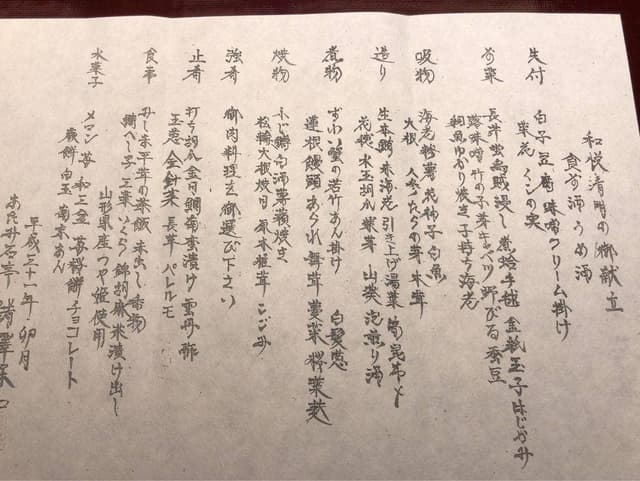 和悦清明の御献立
食前酒 うめ酒
先付 白子豆腐 味噌クリーム掛け
菜花 くこの実
前菜 長芋 蛍烏賊浸し 煮蛤手毬 金紙玉子 はじかみ
蕗味噌 竹の子 芽キャベツ 野びる 蚕豆
桐魚ゆかり焼き 子持ち海老
吸物 海老 花柚子 白魚
大根 人参 たらの芽 木茸
造り 生本鮪 朱海老 引き上げ湯葉 昆布〆
花穂 水玉胡瓜 紫芽 山葵 泡煎り酒
煮物 ずわい蟹の若竹あん掛け 白髪葱
蓮根饅頭 あられ 舞茸 蔓菜 麩
焼物 ふじ鱒白酒幕領焼き
松輪大根 焼目 原木椎茸 こごみ
強肴 御肉料理を御選び下さい
止肴 打ち胡瓜 金目鯛南蛮漬け 雲丹 酢
玉葱 金針菜 長芋 パレルモ
食事 みしま平茸の菜飯 赤出し 香物
鯛へしこ 三葉 いくら 錦胡麻 米漬け出し
山形県産つや姫使用
水菓子 メロン 苺 和三盆 苺 餅 チョコレート
蕨餅 白玉 南京あん
平成三十一年 卯月
あたみ石亭